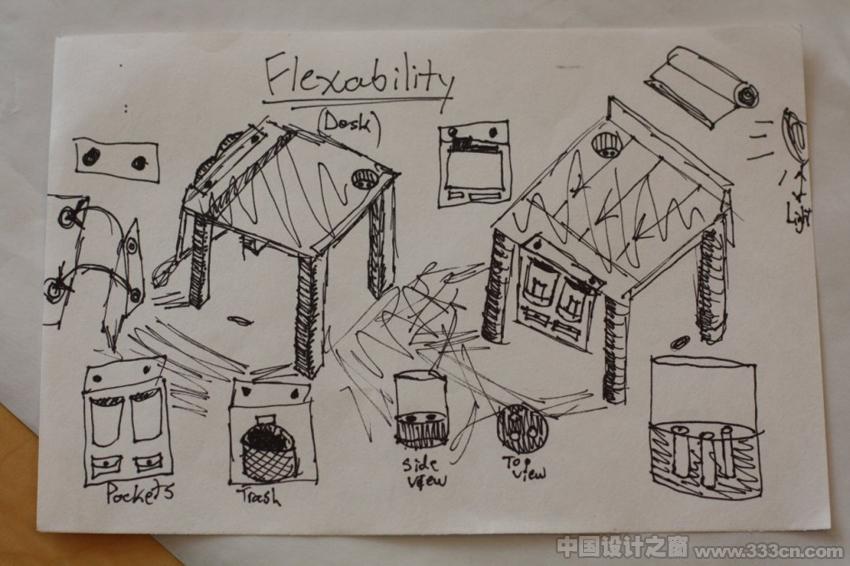 Flexability
(Desk)
Light
Pockets
Trash
Side
View
Top
View
中国设计之窗 www.333cn.com